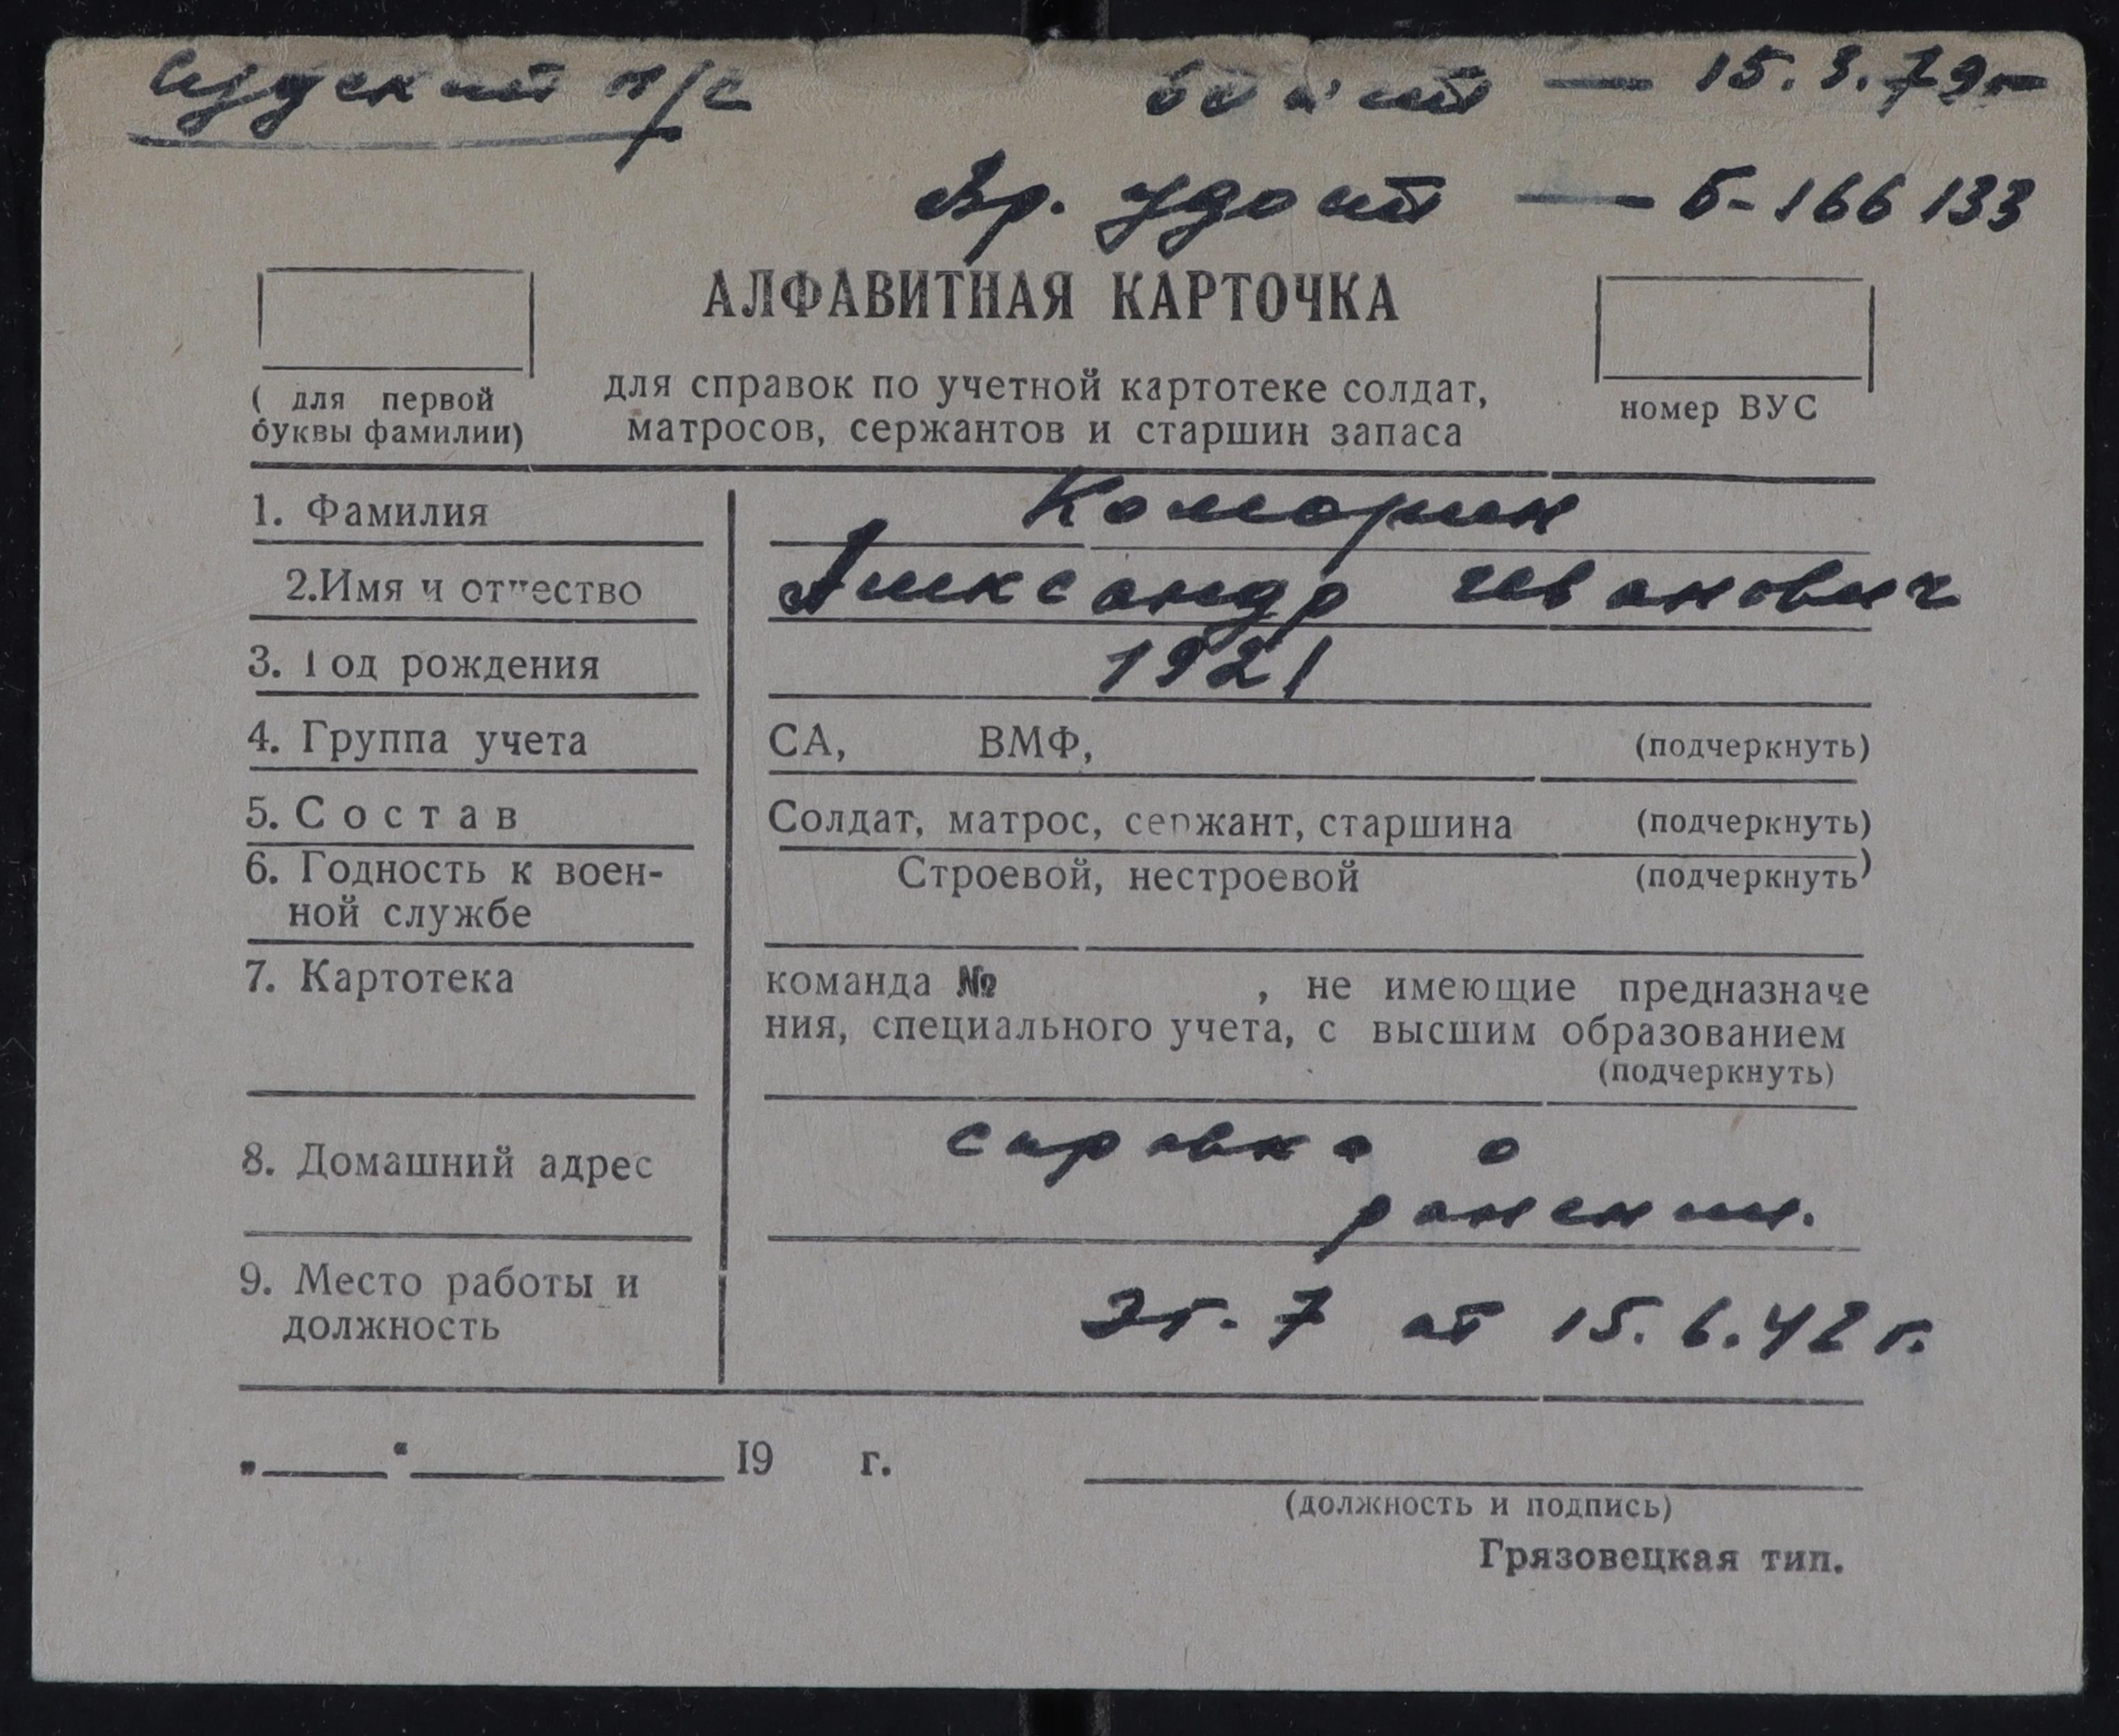 Судский п/с — 15.3.79г
Вр. удост — Б-166133
АЛФАВИТНАЯ КАРТОЧКА
( для первой буквы фамилии)
для справок по учетной картотеке солдат,
матросов, сержантов и старшин запаса
номер ВУС
1. Фамилия Коморин
2.Имя и отчество Александр Иванович
3. Год рождения 1921
4. Группа учета СА, ВМФ, (подчеркнуть)
5. Состав Солдат, матрос, сержант, старшина (подчеркнуть)
6. Годность к воен- Строевой, нестроевой (подчеркнуть)
ной службе
7. Картотека команда № , не имеющие предназначе
ния, специального учета, с высшим образованием
(подчеркнуть)
8. Домашний адрес справка о
ранении.
9. Место работы и
должность ЭГ. 7 от 15.6.42 г.
„ “ 19 г.
(должность и подпись)
Грязовецкая тип.